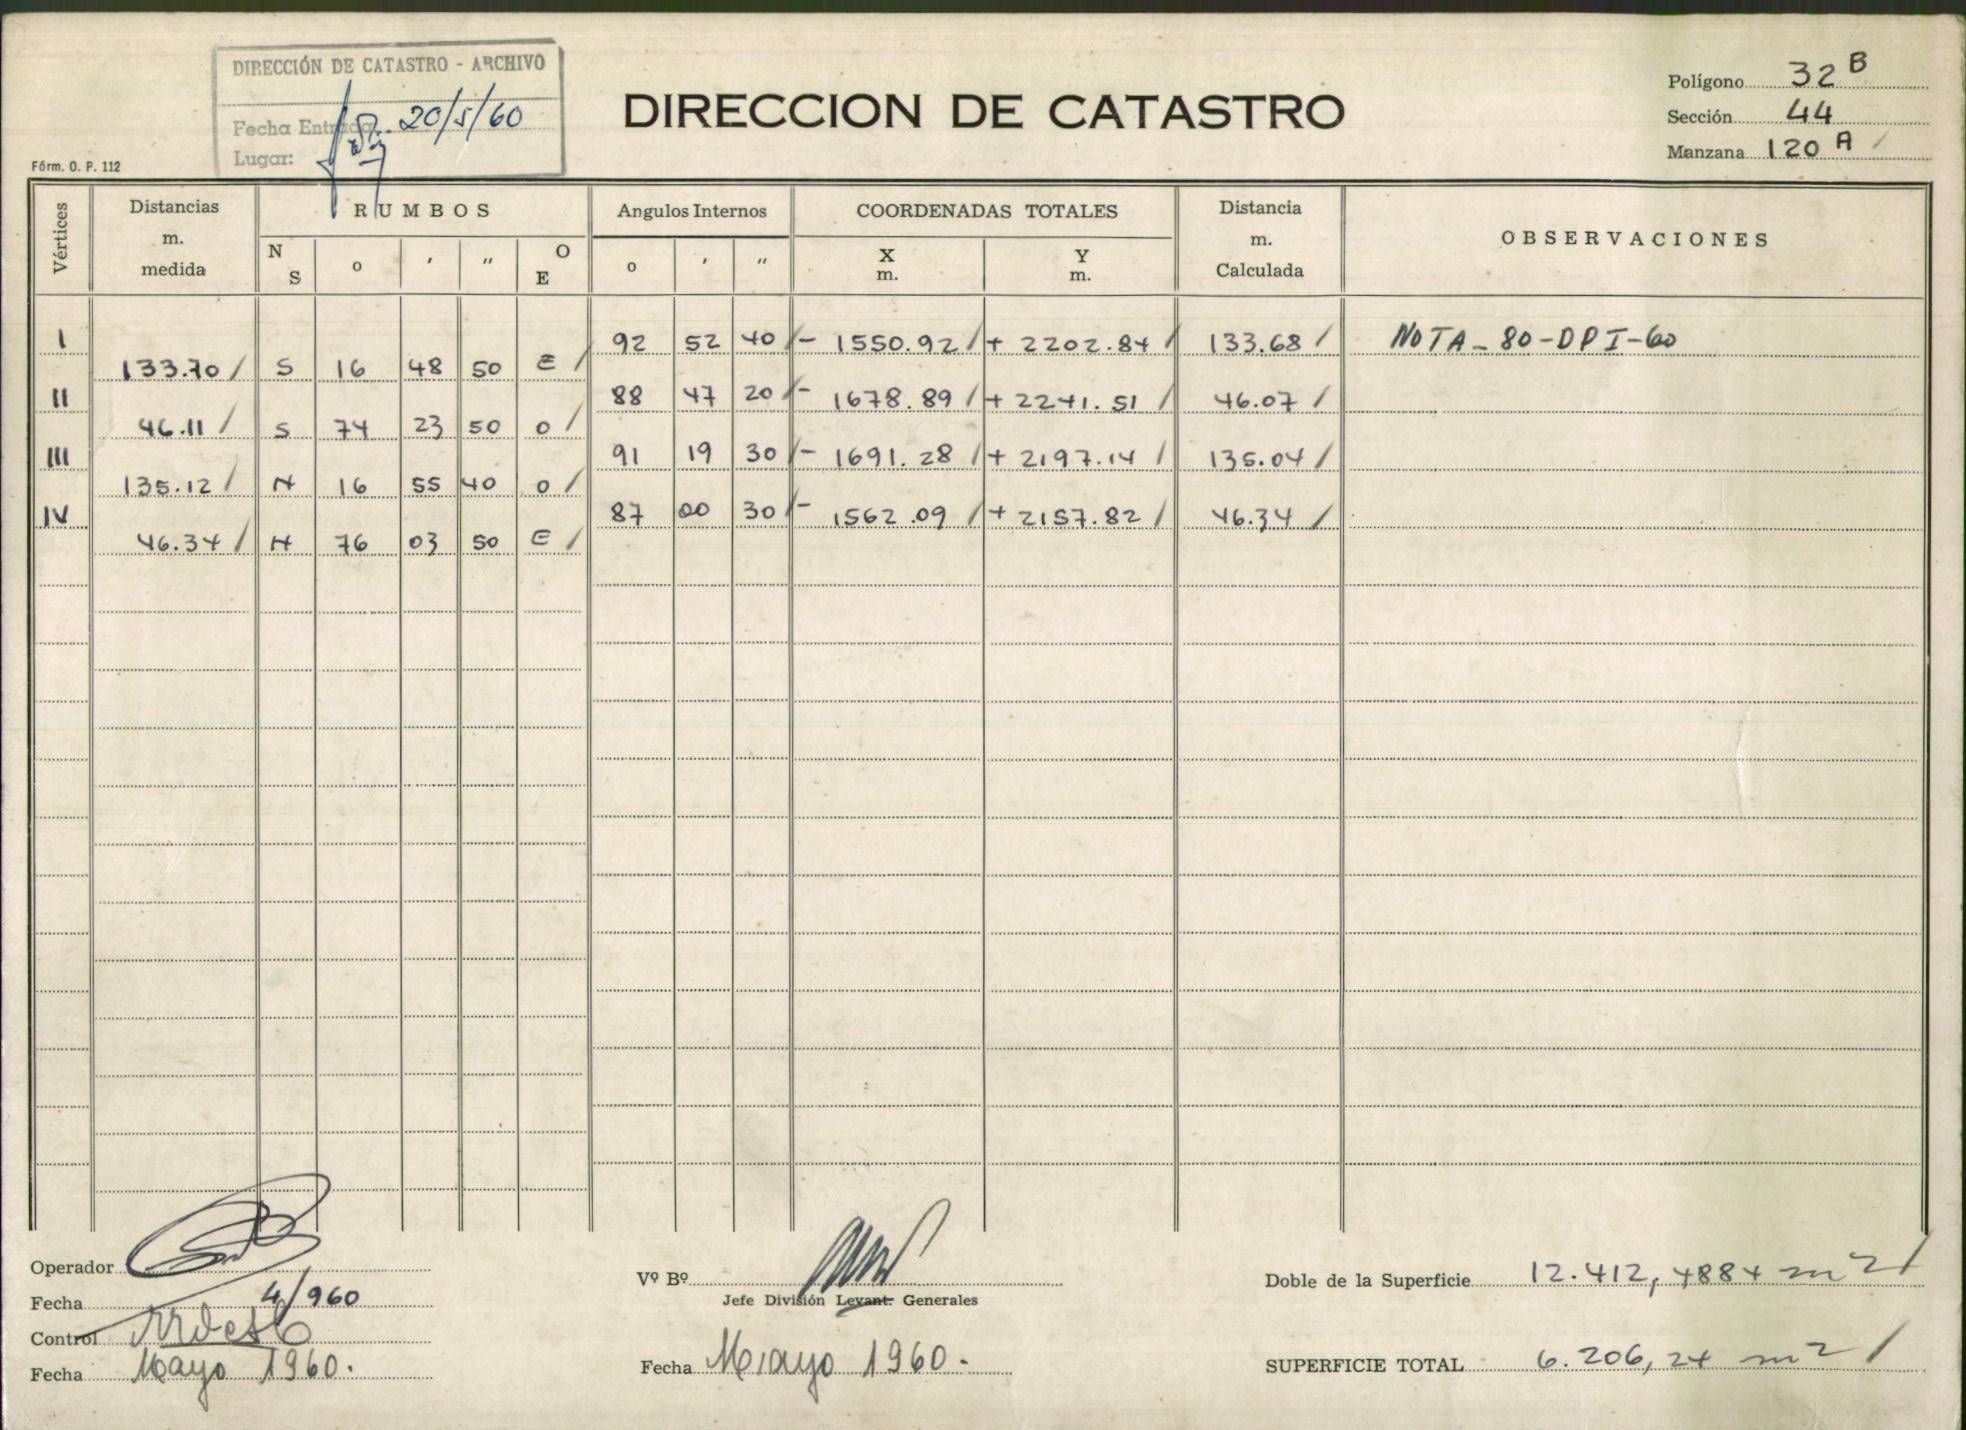 DIRECCIÓN DE CATASTRO - ARCHIVO
Fecha Entrada 20/5/60
Lugar:
DIRECCION DE CATASTRO
Polígono 32 B
Sección 44
Manzana 120 A /
Fórm. O. P. 112
Vértices Distancias m. medida RUMBOS Angulos Internos COORDENADAS TOTALES Distancia m. Calculada OBSERVACIONES
N S o ' " O E o ' " X m. Y m.
I 92 52 40 / - 1550.92 / + 2202.84 / 133.68 / NOTA - 80-DPI-60
133.70 / S 16 48 50 E /
II 88 47 20 / - 1678.89 / + 2241.51 / 46.07 /
46.11 / S 74 23 50 O /
III 91 19 30 / - 1691.28 / + 2197.14 / 135.04 /
135.12 / N 16 55 40 O /
IV 87 00 30 / - 1562.09 / + 2157.82 / 46.34 /
46.34 / N 76 03 50 E /
Operador
Fecha 4/960
Control
Fecha Mayo 1960.
Vº Bº
Jefe División Levant. Generales
Fecha Mayo 1960.
Doble de la Superficie 12.412,4884 m2 /
SUPERFICIE TOTAL 6.206,24 m2 /